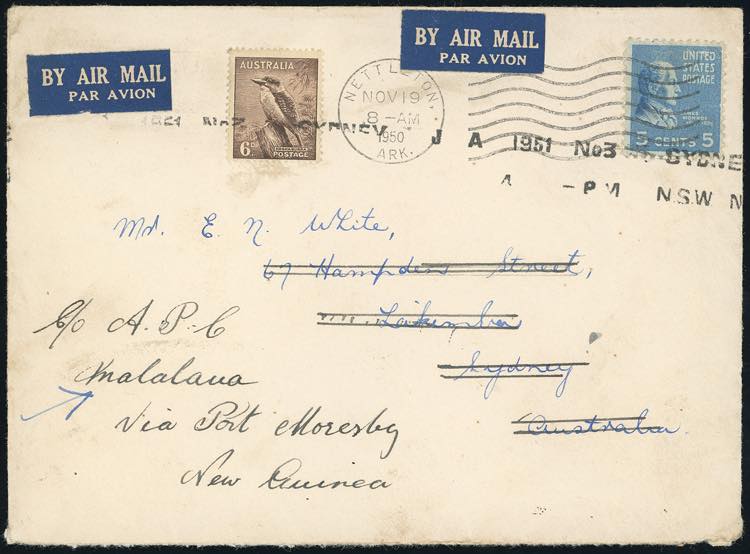 BY AIR MAIL
PAR AVION
AUSTRALIA
6D
POSTAGE
NETTLETON
NOV 19
8 - AM
1950
ARK.
BY AIR MAIL
PAR AVION
UNITED
STATES
POSTAGE
JAMES MONROE
5 CENTS 5
SYDNEY
J A 1951 No3 SYDNE
A - PM N.S.W N
Mr. E. N. White,
67 Hampden Street,
Lakemba
Sydney
Australia.
C/o A.P.C
Malalaua
Via Port Moresby
New Guinea